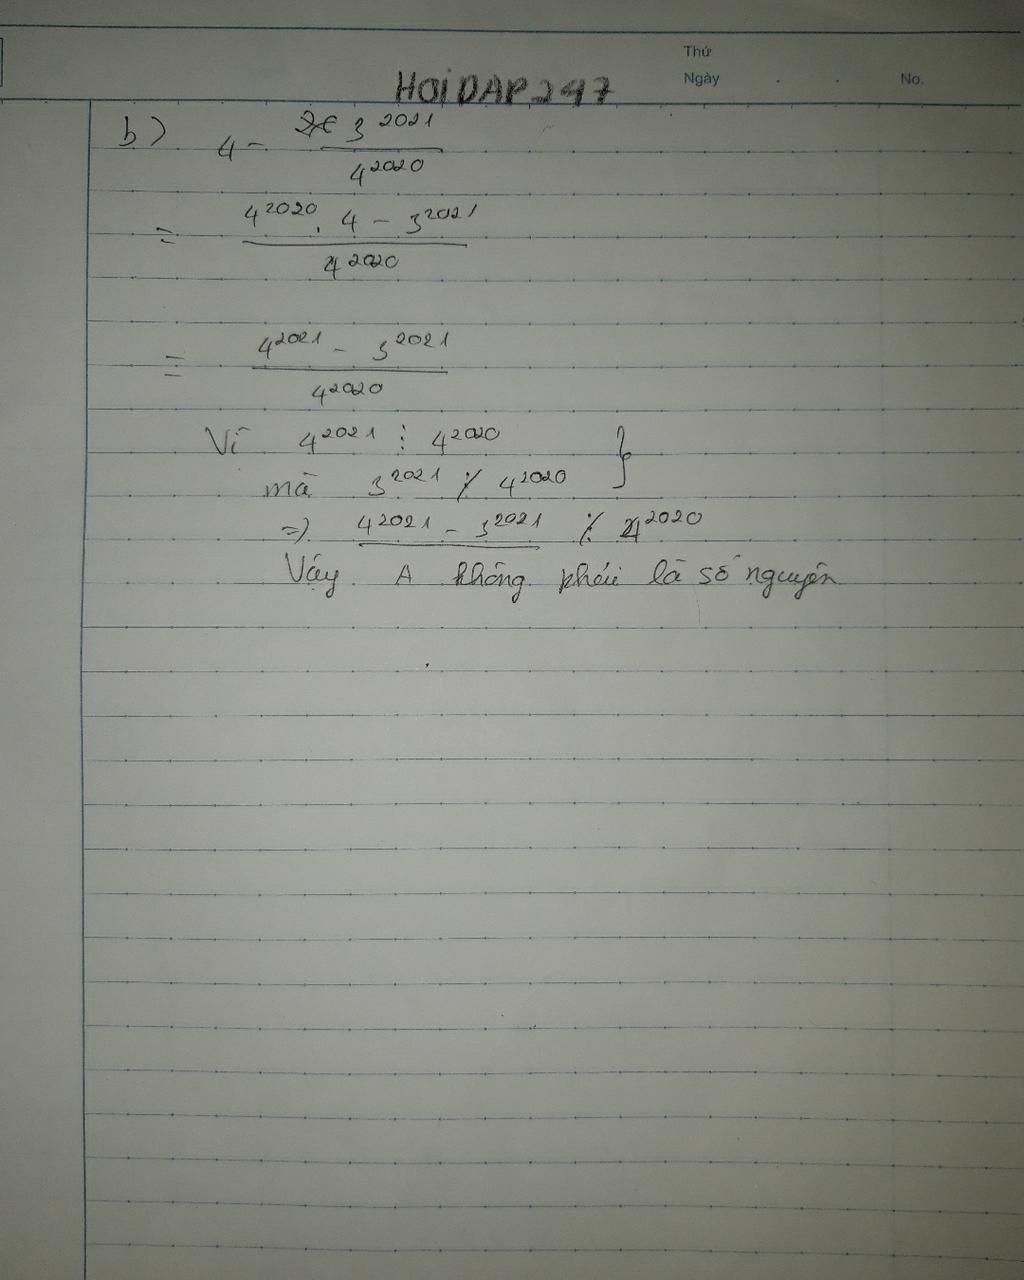 Thứ
HOIDAP247
Ngày . . No.
b) 4 - 3^2021 / 4^2020
= 4^2020 . 4 - 3^2021 / 4^2020
= 4^2021 - 3^2021 / 4^2020
Vì 4^2021 ⋮ 4^2020 }
mà 3^2021 ⋮̸ 4^2020
=) 4^2021 - 3^2021 ⋮̸ 4^2020
Vậy A không phải là số nguyên